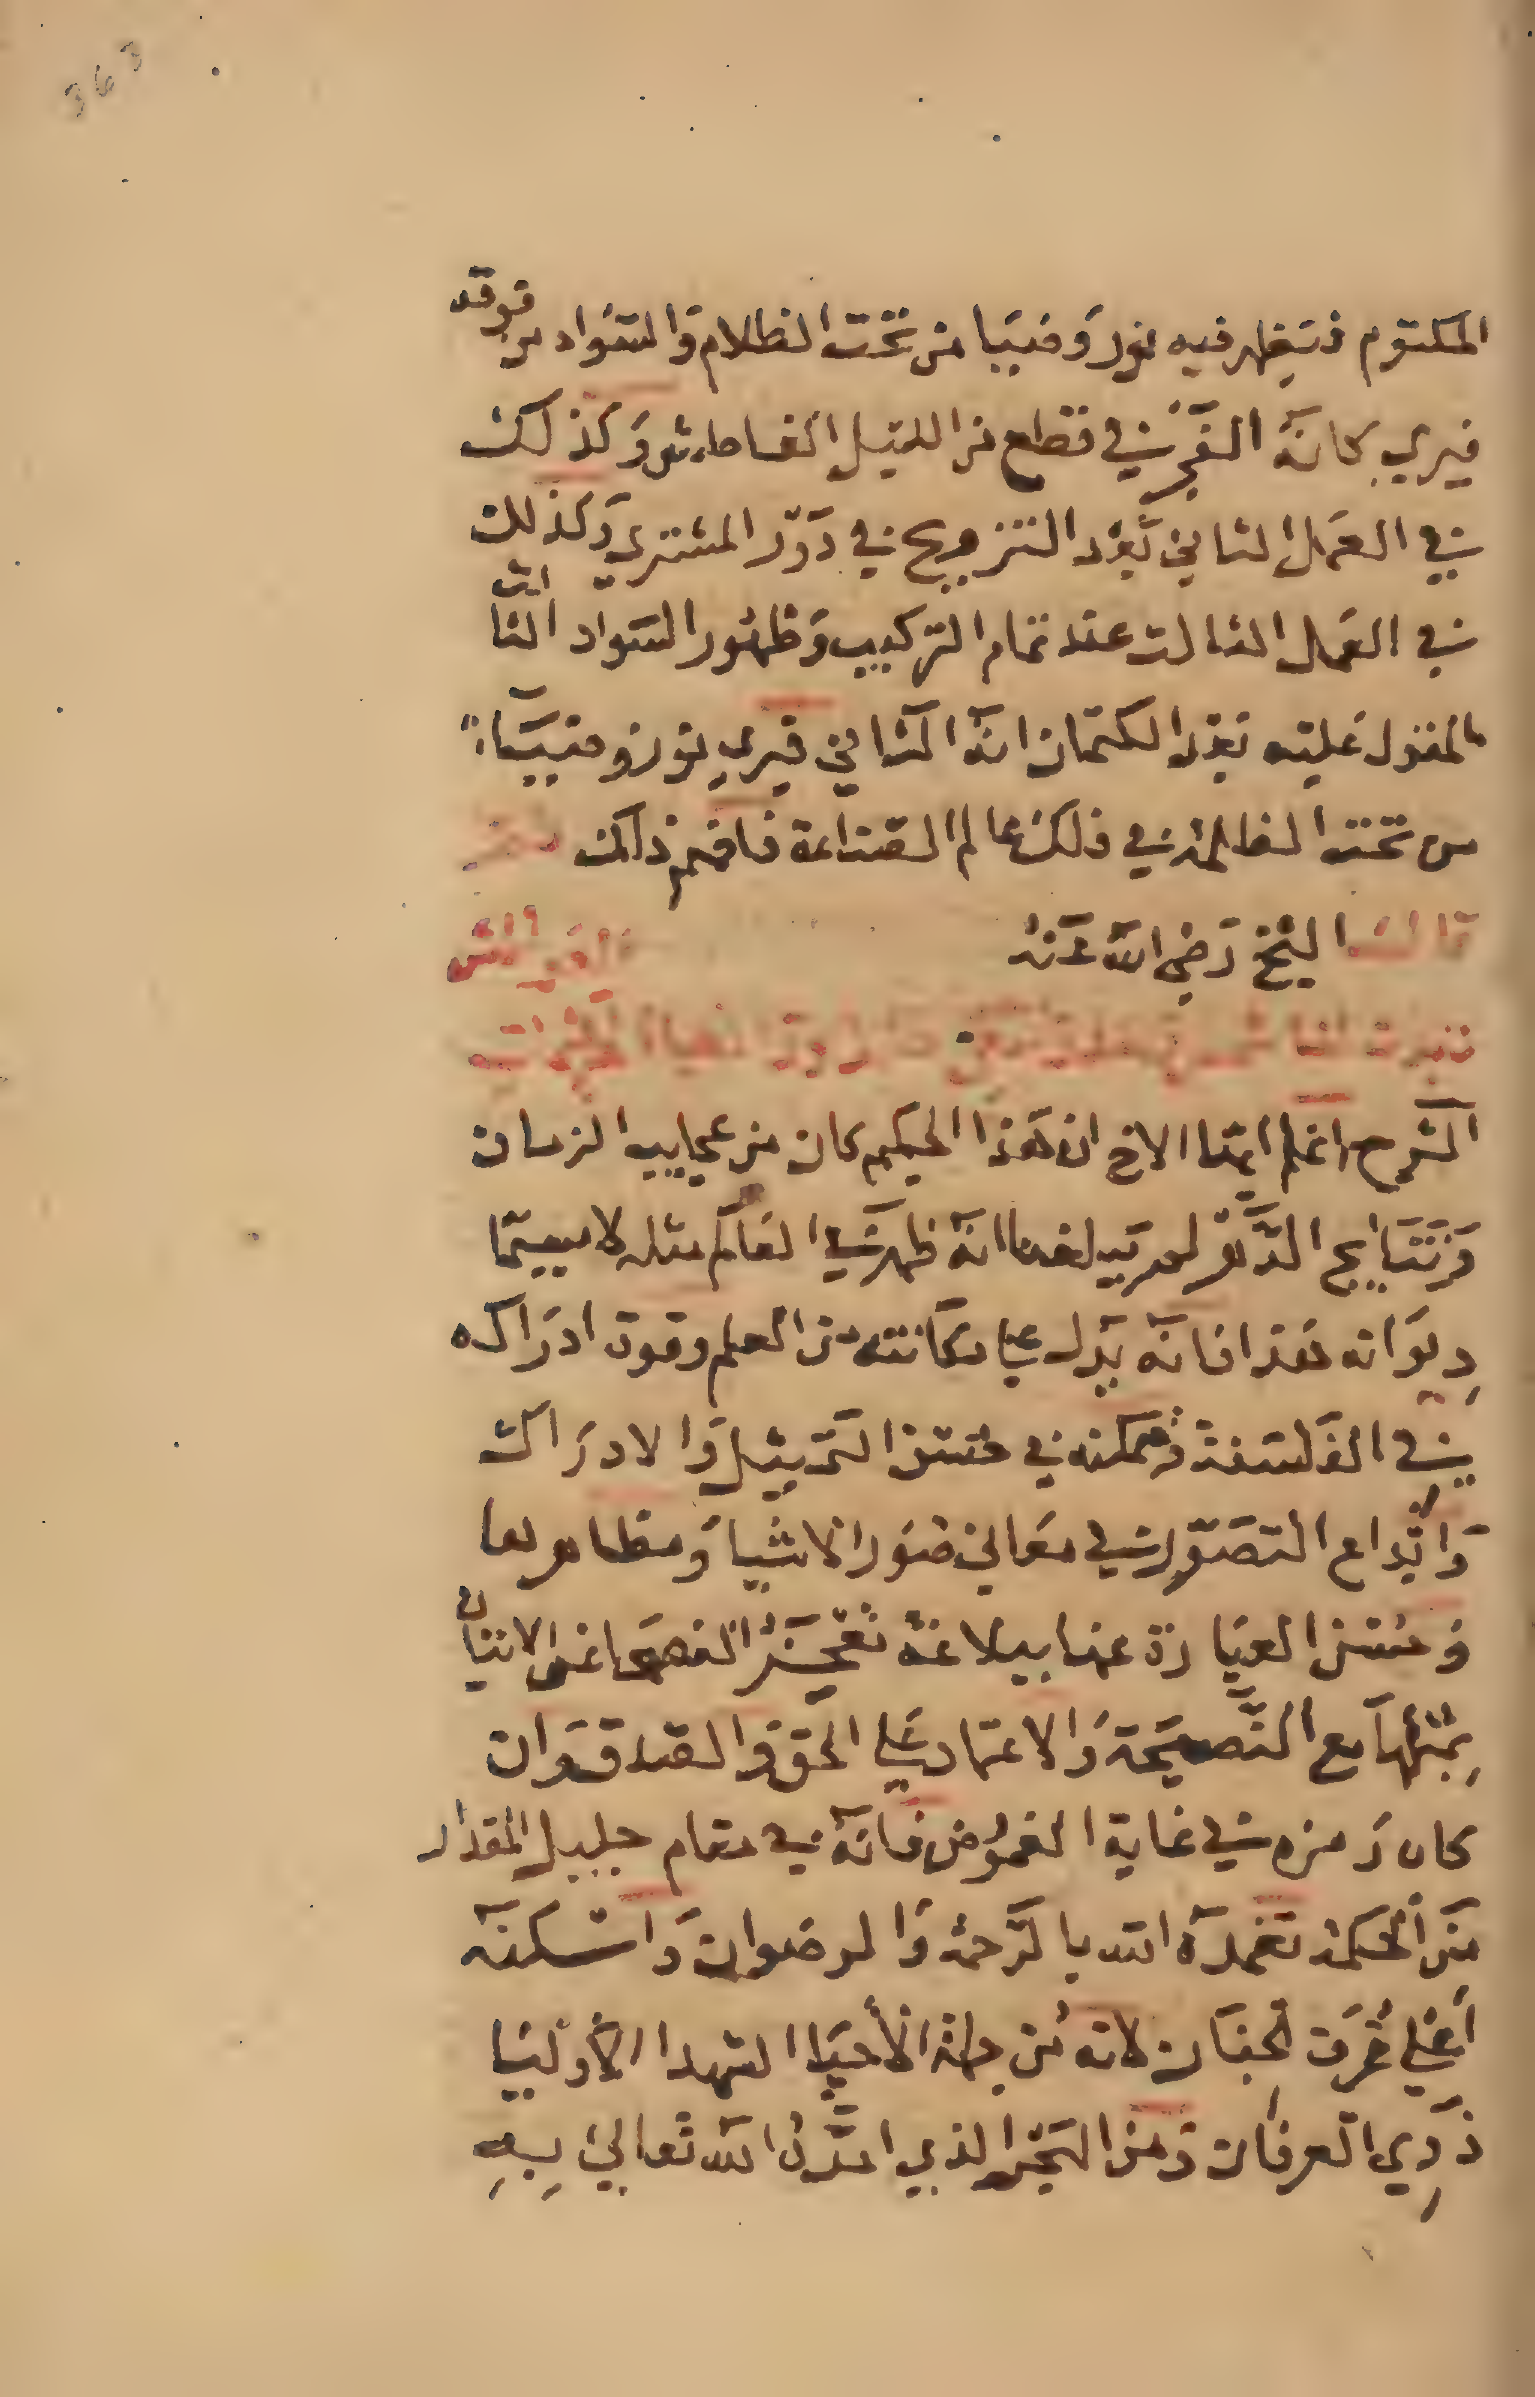 363
المكتوم فيظهر فيه نور وضيا من تحت الظلام والسواد من فوقه
فيري كانه الفجر في قطع من الليل الغامض وكذلك
في العمل الثاني بعد التزويج في دور المشتري وكذلك
في العمل الثالث عند تمام التركيب وظهور السواد الثالث
المعول عليه بعد الكتمان انه الثاني فيري نور وضيا
من تحت الظلمة في فلك عالم الصناعة فافهم ذلك
قال الشيخ رضي الله عنه
الشرح اعلم ايها الاخ ان هذا الحكيم كان من عجايب الزمان
ونتايج الدهر لم يبلغنا انه ظهر في العالم مثله لا سيما
ديوانه هذا فانه يدل على مكانته من العلم وقوة ادراكه
في الفلسفة وتمكنه في حسن التمثيل والادراك
وابداع التصور في معاني صور الاشيا ومظاهرها
وحسن العبارة عنها ببلاغة تعجز الفصحا عن الاتيان
بمثلها مع النصيحة والاعتماد على الحق والصدق وان
كان رمزه في غاية الغموض فانه في مقام جليل المقدار
من الحكمة تغمده الله بالرحمة والرضوان واسكنه
اعلي غرف الجنان لانه من جملة الأحيا الشهدا الأوليا
ذوي العرفان ومن البحر الذي امده الله تعالى به